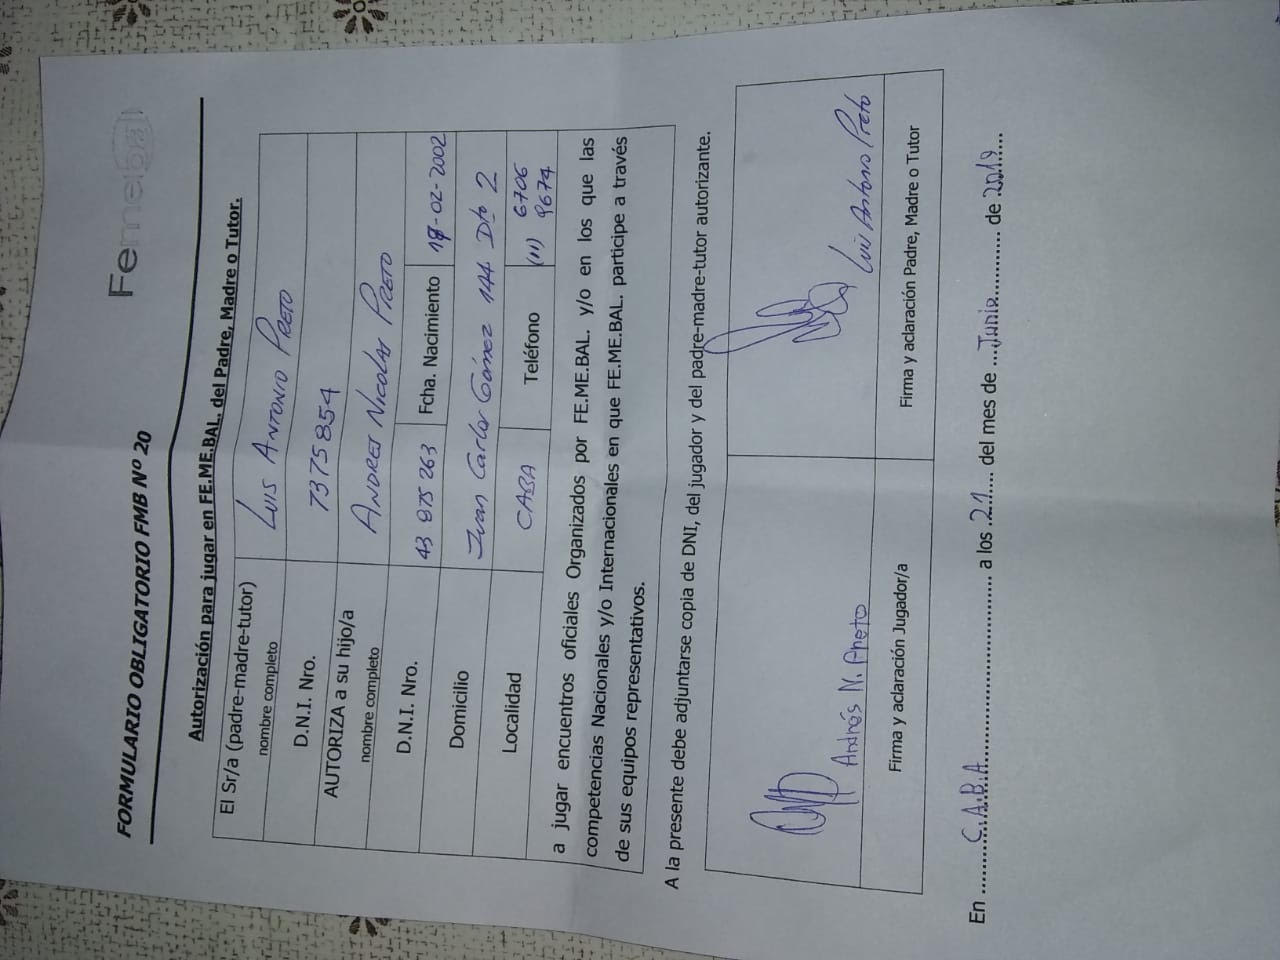 Femebal
FORMULARIO OBLIGATORIO FMB Nº 20
Autorización para jugar en FE.ME.BAL. del Padre, Madre o Tutor.
El Sr/a (padre-madre-tutor) nombre completo LUIS ANTONIO PRETO
D.N.I. Nro. 7375854
AUTORIZA a su hijo/a nombre completo ANDRES NICOLAS PRETO
D.N.I. Nro. 43 875 263 Fcha. Nacimiento -02-2002
Domicilio Juan Carlos Gómez 144 Dto 2
Localidad CABA Teléfono (11) 6706 9674
a jugar encuentros oficiales Organizados por FE.ME.BAL. y/o en los que las
competencias Nacionales y/o Internacionales en que FE.ME.BAL. participe a través
de sus equipos representativos.
A la presente debe adjuntarse copia de DNI, del jugador y del padre-madre-tutor autorizante.
Andrés N. Preto Luis Antonio Preto
Firma y aclaración Jugador/a Firma y aclaración Padre, Madre o Tutor
En ........C.A.B.A.............................. a los .21...... del mes de ...Junio............ de 2019....